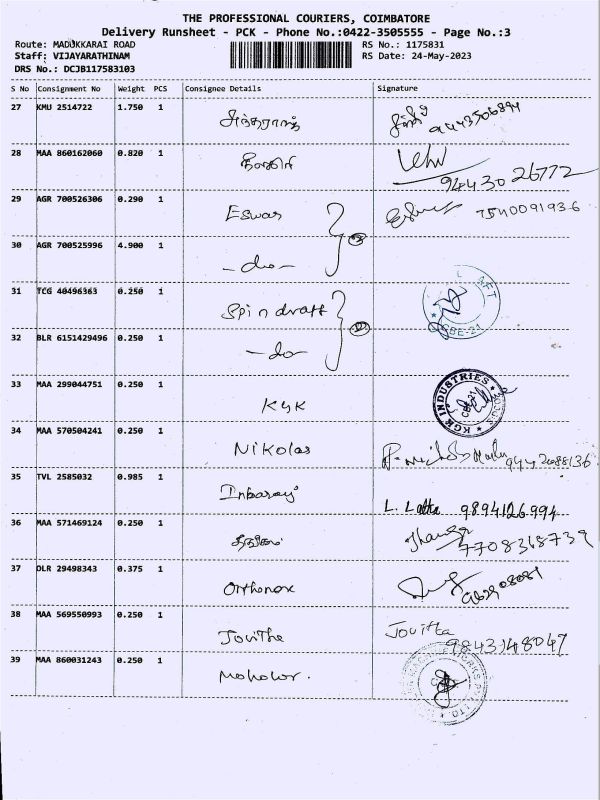 THE PROFESSIONAL COURIERS, COIMBATORE
Delivery Runsheet - PCK - Phone No.:0422-3505555 - Page No.:3
Route: MADUKKARAI ROAD RS No.: 1175831
Staff: VIJAYARATHINAM RS Date: 24-May-2023
DRS No.: DCJB117583103
S No Consignment No Weight PCS Consignee Details Signature
27 KMU 2514722 1.750 1 9443506894
28 MAA 860162060 0.820 1 9443026772
29 AGR 700526306 0.290 1 Eswar 7540091936
30 AGR 700525996 4.900 1 -do-
31 TCG 40496363 0.250 1 Spindraft
32 BLR 6151429496 0.250 1 -do- CBE-21
33 MAA 299044751 0.250 1 KGK KGK INDUSTRIES
34 MAA 570504241 0.250 1 Nikolas
35 TVL 2585032 0.985 1 Inbaraj L. Latha 9894126994
36 MAA 571469124 0.250 1 7708368739
37 DLR 29498343 0.375 1 Orthonox
38 MAA 569550993 0.250 1 Jovitha Jovitta 9843148047
39 MAA 860031243 0.250 1